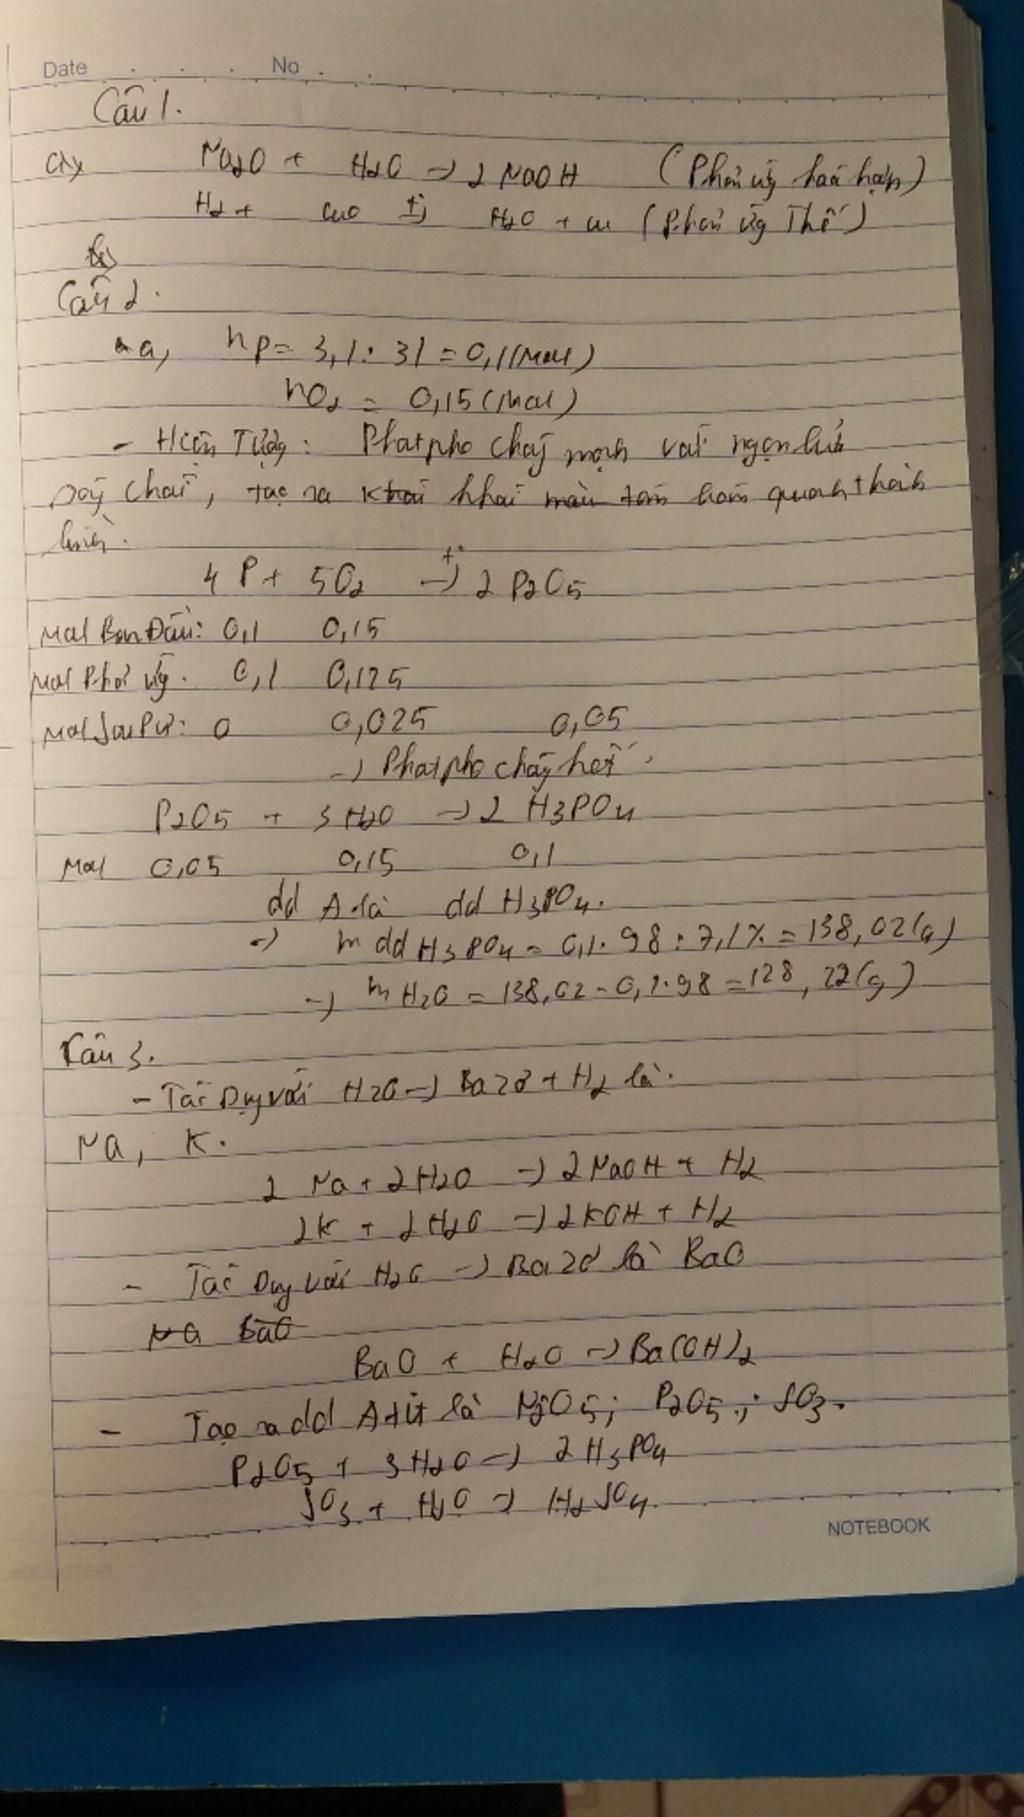 Date No
Câu 1.
a,
Na2O + H2O -> 2 NaOH (Phản ứng hoá hợp)
H2 + CuO t°-> H2O + Cu (Phản ứng Thế)
b,
Câu 2.
a, nP = 3,1 : 31 = 0,1 (mol)
nO2 = 0,15 (mol)
- Hiện Tượng: Photpho cháy mạnh với ngọn lửa
sáng chói, tạo ra khói màu bám quanh thành
bình.
4 P + 5O2 t°-> 2 P2O5
Mol Ban Đầu: 0,1 0,15
Mol Phản ứng: 0,1 0,125
Mol Sau Pứ: 0 0,025 0,05
-> Photpho cháy hết.
P2O5 + 3 H2O -> 2 H3PO4
Mol 0,05 0,15 0,1
dd A là dd H3PO4.
-> m dd H3PO4 = 0,1 . 98 : 7,1% = 138,02 (g)
-> m H2O = 138,02 - 0,1.98 = 128,22 (g)
Câu 3.
- Tác Dụng với H2O -> Bazơ + H2 là:
Na, K.
2 Na + 2 H2O -> 2 NaOH + H2
2K + 2 H2O -> 2 KOH + H2
- Tác Dụng với H2O -> Bazơ là BaO
Na BaO
BaO + H2O -> Ba(OH)2
- Tạo ra dd Axit là N2O5; P2O5; SO3.
P2O5 + 3 H2O -> 2 H3PO4
SO3 + H2O -> H2SO4.
NOTEBOOK